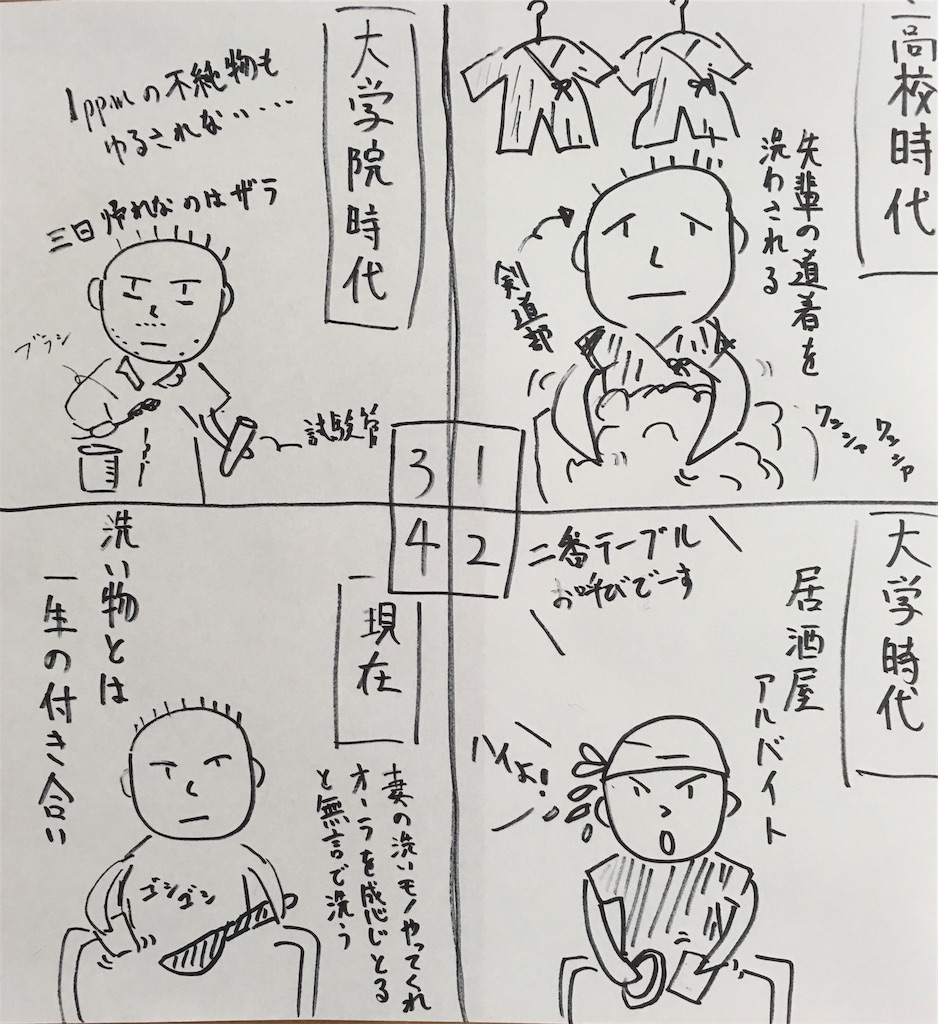 高校時代
先輩の道着を
洗わされる
剣道部
ワシャ
ワシャ
1
大学時代
居酒屋
アルバイト
二番テーブル
お呼びでーす
ハイよ!
2
大学院時代
1ppmの不純物も
ゆるされない・・・
三日帰れなのはザラ
ブラシ
試験管
3
現在
妻の洗いモノやってくれ
オーラを感じとる
と無言で洗う
ゴシゴシ
洗い物とは
一生の付き合い
4